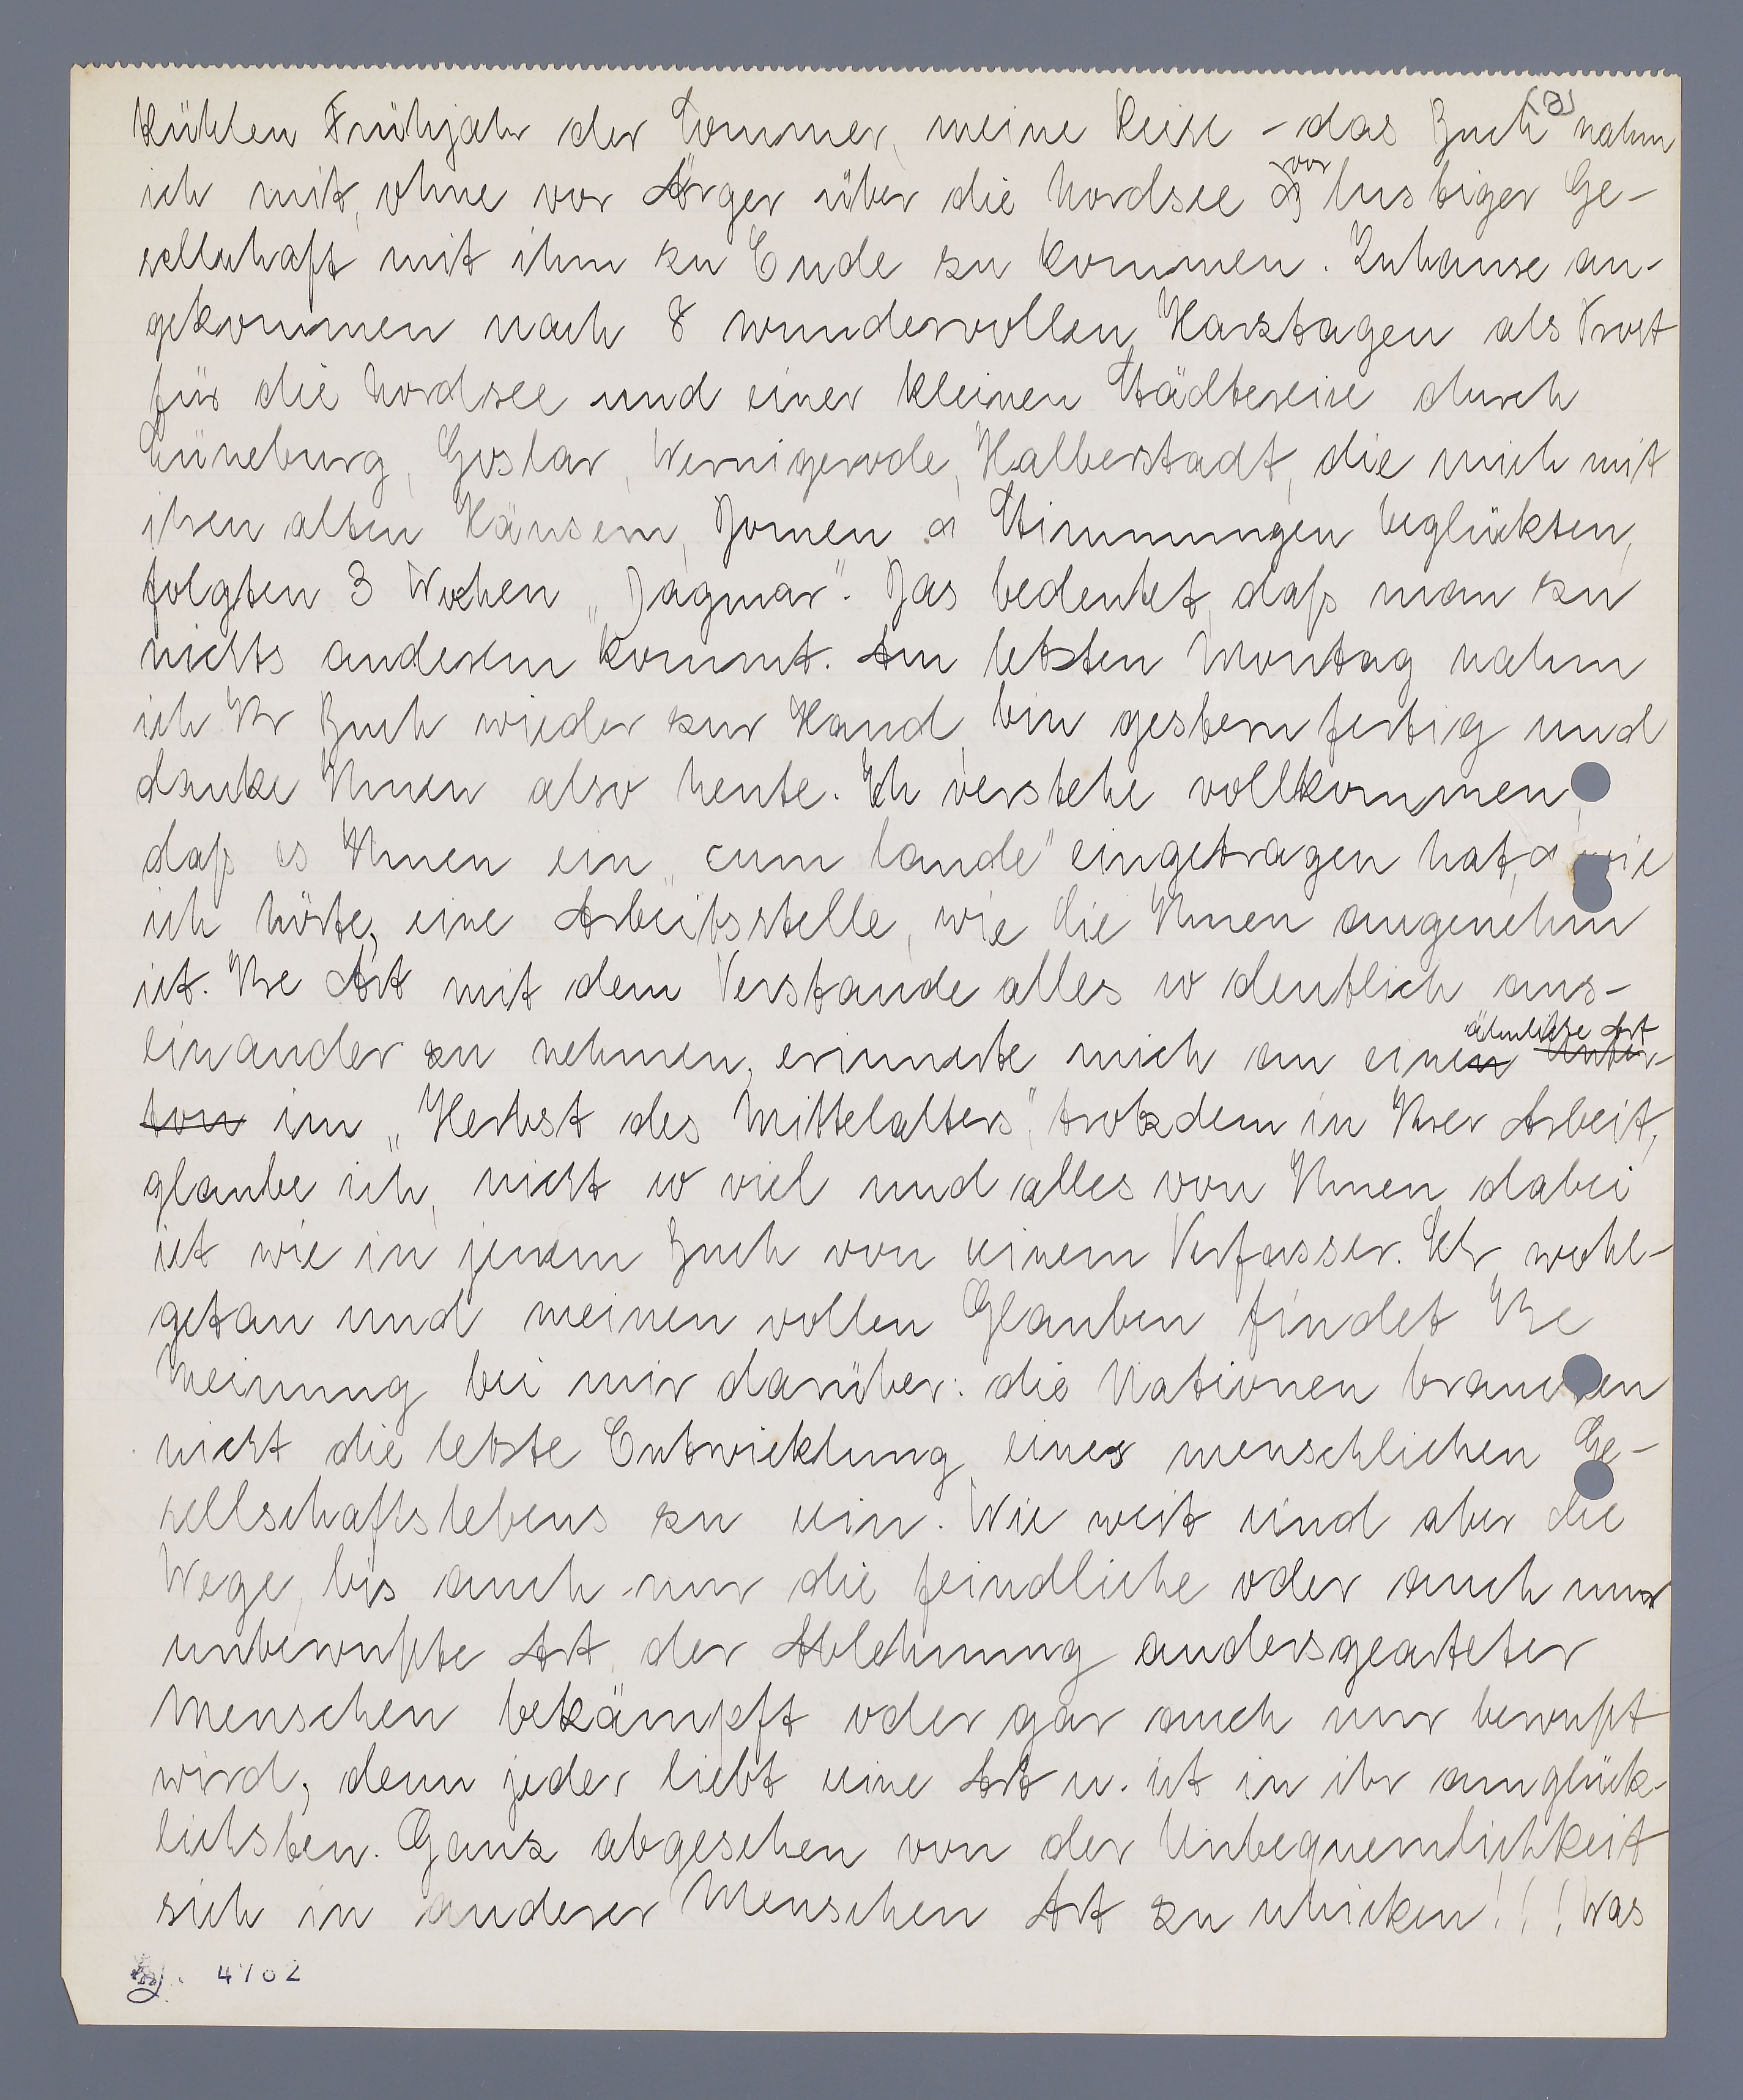 (2)
kühlen Frühjahr der Sommer, meine Reise – das Buch nahm
ich mit, ohne vor Ärger über die Nordsee & vor lustiger Ge-
sellschaft mit ihm zu Ende zu kommen. Zuhause an-
gekommen nach 8 wundervollen Harztagen als Trost
für die Nordsee und einer kleinen Städtereise durch
Lüneburg, Goslar, Wernigerode, Halberstadt, die mich mit
ihren alten Häusern, Domen & Stimmungen beglückten,
folgten 3 Wochen „Dagmar". Das bedeutet, daß man zu
nichts anderem kommt. Am letzten Montag nahm
ich Ihr Buch wieder zur Hand, bin gestern fertig und
danke Ihnen also heute. Ich verstehe vollkommen,
daß es Ihnen ein „cum laude" eingetragen hat, & wie
ich hörte, eine Arbeitsstelle, wie die Ihnen angenehm
ist. Ihre Art mit dem Verstande alles so deutlich aus-
einander zu nehmen, erinnerte mich an einen Unter-
ähnliche Art
ton im „Herbst des Mittelalters", trotzdem in Ihrer Arbeit,
glaube ich, nicht so viel und alles von Ihnen dabei
ist wie in jenem Buch von seinem Verfasser. Sehr wohl-
getan und meinen vollen Glauben findet Ihre
Meinung bei mir darüber: die Nationen brauchen
nicht die letzte Entwicklung eines menschlichen Ge-
sellschaftslebens zu sein. Wie weit sind aber die
Wege, bis auch nur die feindliche oder auch nur
unbewußte Art der Ablehnung andersgearteter
Menschen bekämpft oder gar auch nur bewußt
wird, denn jeder liebt seine Art u. ist in ihr am glück-
lichsten. Ganz abgesehen von der Unbequemlichkeit
sich in anderer Menschen Art zu schicken!!! Was
4762